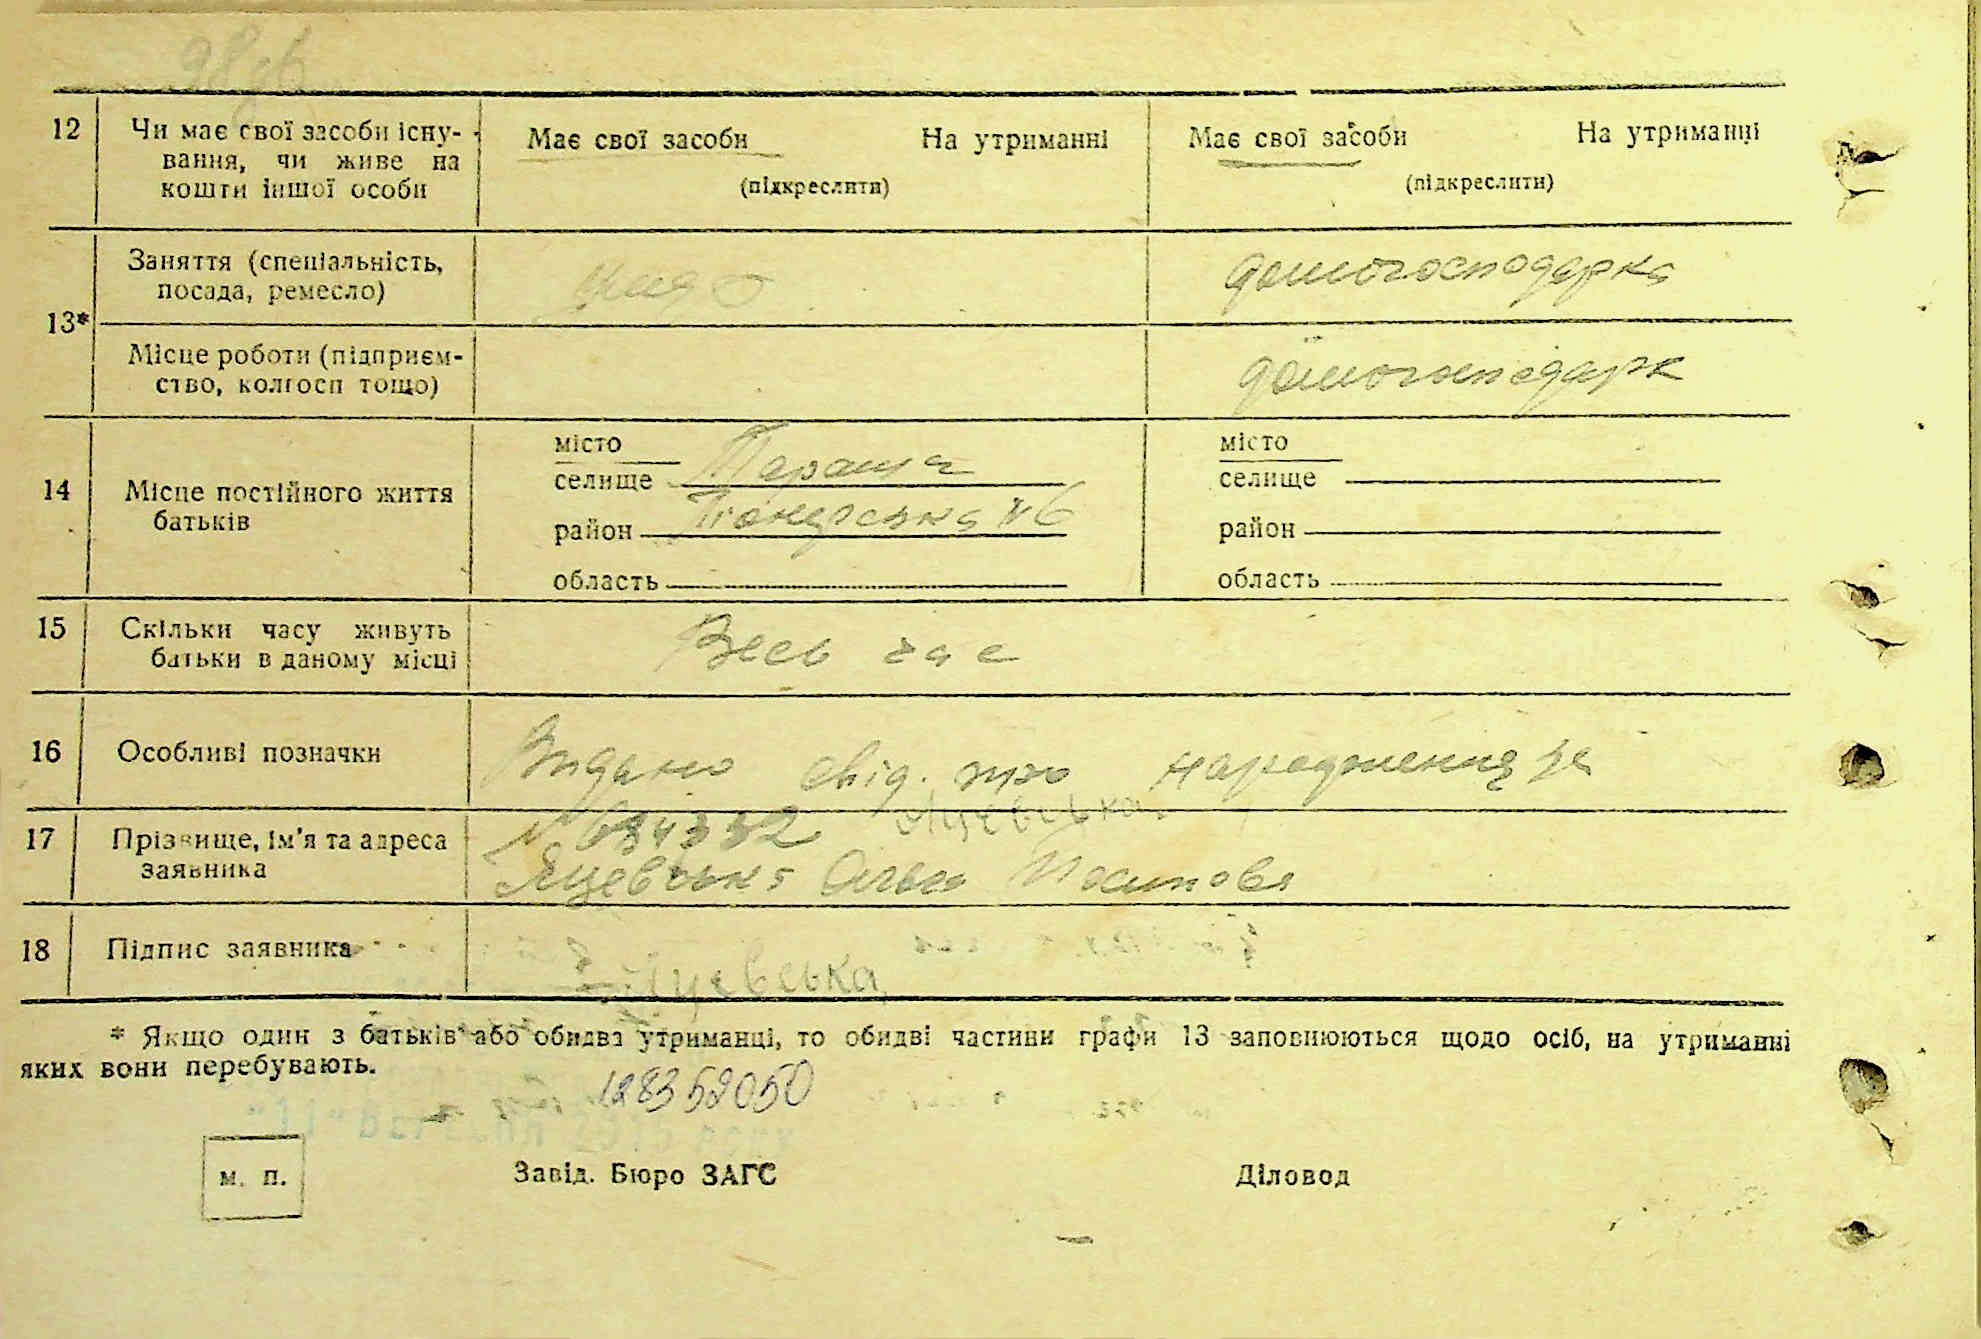 12 Чи має свої засоби існу- Має свої засоби На утриманні Має свої засоби На утриманці
вання, чи живе на
кошти іншої особи (підкреслити) (підкреслити)
13* Заняття (спеціальність, домогосподарка
посада, ремесло)
Місце роботи (підприєм- домогосподарк
ство, колгосп тощо)
14 Місце постійного життя
батьків
місто
селище Тараща
район Піонерська №6
область
місто
селище
район
область
15 Скільки часу живуть Весь час
батьки в даному місці
16 Особливі позначки Видано свід. про народження за
№ 634332 Яцевська
17 Прізвище, ім'я та адреса
заявника Яцевська Ольга Йосипова
18 Підпис заявника Яцевська
* Якщо один з батьків або обидва утриманці, то обидві частини графи 13 заповнюються щодо осіб, на утриманні
яких вони перебувають.
128352050
м. п. Завід. Бюро ЗАГС Діловод